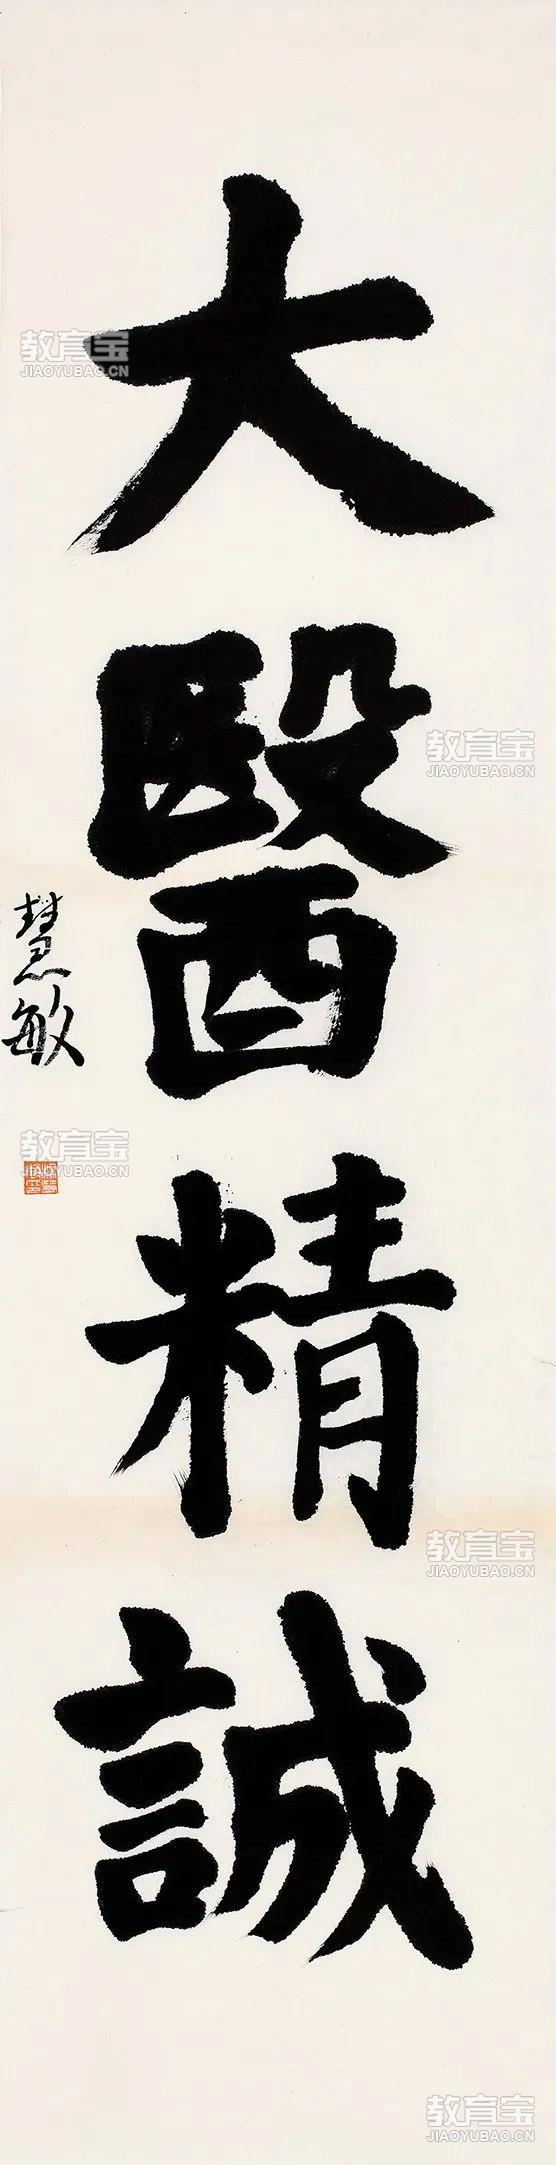 大醫精誠
慧敏
教育宝
JIAOYUBAO.CN
教育宝
JIAOYUBAO.CN
教育宝
JIAOYUBAO.CN
教育宝
JIAOYUBAO.CN
教育宝
JIAOYUBAO.CN